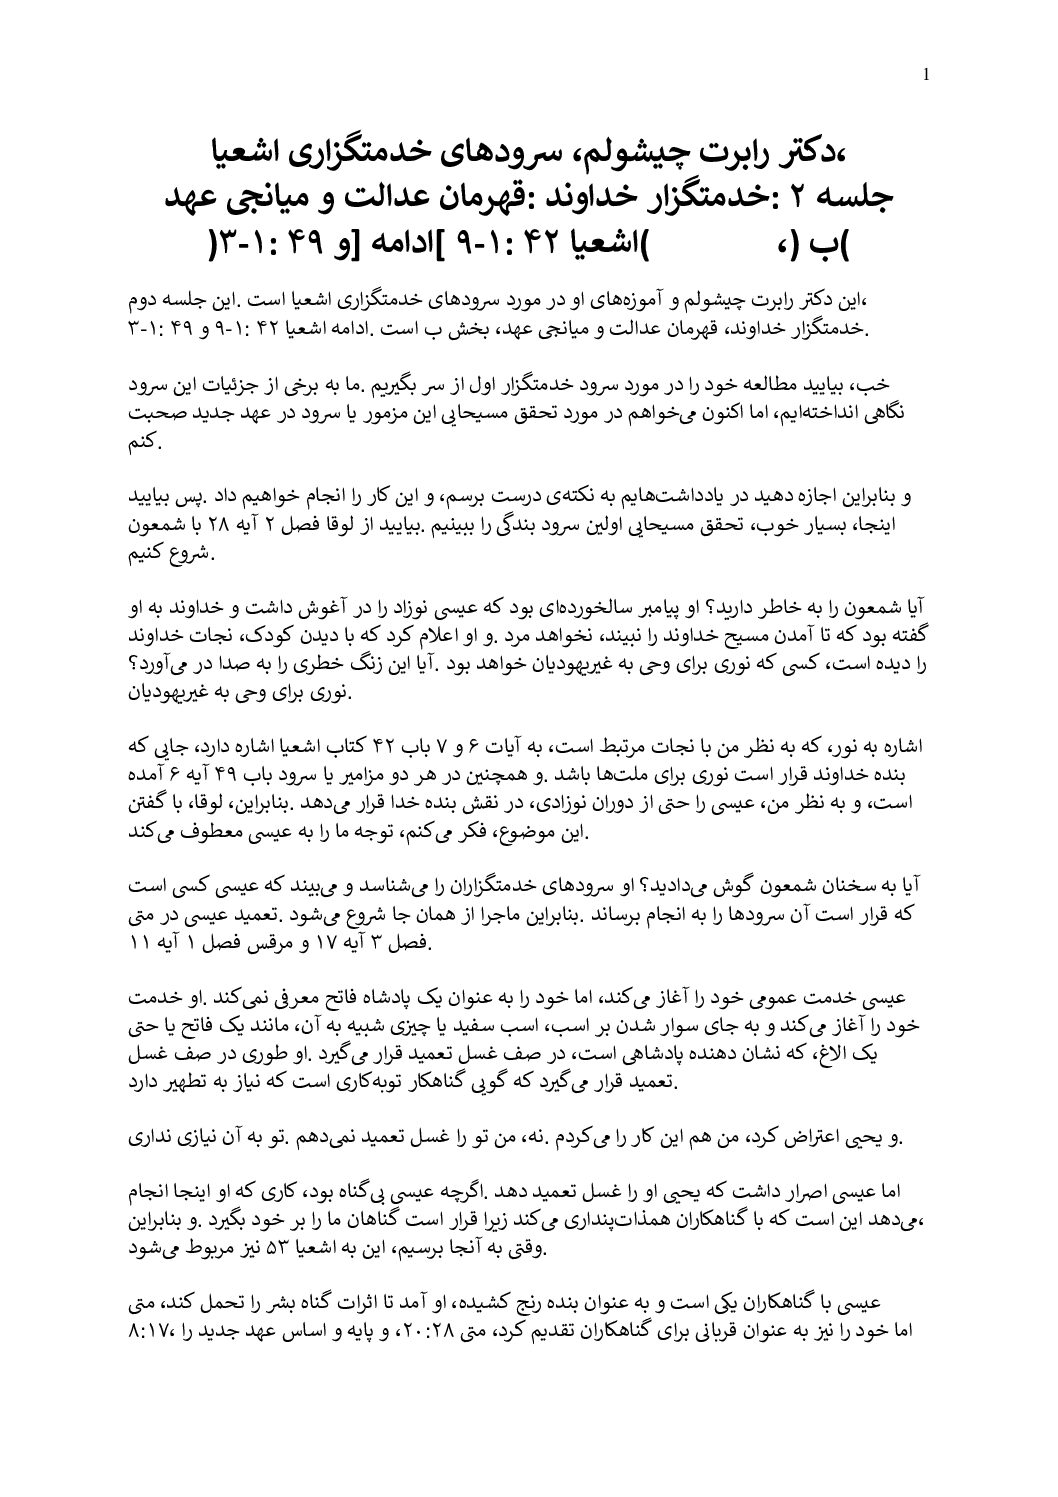 1
دکتر رابرت چیشولم، سرودهای خدمتگزاری اشعیا،
جلسه ۲ :خدمتگزار خداوند :قهرمان عدالت و میانجی عهد
)ب (، )اشعیا ۴۲ :۱-۹ ]ادامه [و ۴۹ :۱-۳(
این دکتر رابرت چیشولم و آموزه‌های او در مورد سرودهای خدمتگزاری اشعیا است .این جلسه دوم،
خدمتگزار خداوند، قهرمان عدالت و میانجی عهد، بخش ب است .ادامه اشعیا ۴۲ :۱-۹ و ۴۹ :۱-۳.
خب، بیایید مطالعه خود را در مورد سرود خدمتگزار اول از سر بگیریم .ما به برخی از جزئیات این سرود
نگاهی انداخته‌ایم، اما اکنون می‌خواهم در مورد تحقق مسیحایی این مزمور یا سرود در عهد جدید صحبت
کنم.
و بنابراین اجازه دهید در یادداشت‌هایم به نکته‌ی درست برسم، و این کار را انجام خواهیم داد .پس بیایید
اینجا، بسیار خوب، تحقق مسیحایی اولین سرود بندگی را ببینیم .بیایید از لوقا فصل ۲ آیه ۲۸ با شمعون
شروع کنیم.
آیا شمعون را به خاطر دارید؟ او پیامبر سالخورده‌ای بود که عیسی نوزاد را در آغوش داشت و خداوند به او
گفته بود که تا آمدن مسیح خداوند را نبیند، نخواهد مرد .و او اعلام کرد که با دیدن کودک، نجات خداوند
را دیده است، کسی که نوری برای وحی به غیریهودیان خواهد بود .آیا این زنگ خطری را به صدا در می‌آورد؟
نوری برای وحی به غیریهودیان.
اشاره به نور، که به نظر من با نجات مرتبط است، به آیات ۶ و ۷ باب ۴۲ کتاب اشعیا اشاره دارد، جایی که
بنده خداوند قرار است نوری برای ملت‌ها باشد .و همچنین در هر دو مزامیر یا سرود باب ۴۹ آیه ۶ آمده
است، و به نظر من، عیسی را حتی از دوران نوزادی، در نقش بنده خدا قرار می‌دهد .بنابراین، لوقا، با گفتن
این موضوع، فکر می‌کنم، توجه ما را به عیسی معطوف می‌کند.
آیا به سخنان شمعون گوش می‌دادید؟ او سرودهای خدمتگزاران را می‌شناسد و می‌بیند که عیسی کسی است
که قرار است آن سرودها را به انجام برساند .بنابراین ماجرا از همان جا شروع می‌شود .تعمید عیسی در متی
فصل ۳ آیه ۱۷ و مرقس فصل ۱ آیه ۱۱.
عیسی خدمت عمومی خود را آغاز می‌کند، اما خود را به عنوان یک پادشاه فاتح معرفی نمی‌کند .او خدمت
خود را آغاز می‌کند و به جای سوار شدن بر اسب، اسب سفید یا چیزی شبیه به آن، مانند یک فاتح یا حتی
یک الاغ، که نشان دهنده پادشاهی است، در صف غسل تعمید قرار می‌گیرد .او طوری در صف غسل
تعمید قرار می‌گیرد که گویی گناهکار توبه‌کاری است که نیاز به تطهیر دارد.
و یحیی اعتراض کرد، من هم این کار را می‌کردم .نه، من تو را غسل تعمید نمی‌دهم .تو به آن نیازی نداری.
اما عیسی اصرار داشت که یحیی او را غسل تعمید دهد .اگرچه عیسی بی‌گناه بود، کاری که او اینجا انجام
می‌دهد این است که با گناهکاران همذات‌پنداری می‌کند زیرا قرار است گناهان ما را بر خود بگیرد .و بنابراین،
وقتی به آنجا برسیم، این به اشعیا ۵۳ نیز مربوط می‌شود.
عیسی با گناهکاران یکی است و به عنوان بنده رنج کشیده، او آمد تا اثرات گناه بشر را تحمل کند، متی
۸:۱۷، اما خود را نیز به عنوان قربانی برای گناهکاران تقدیم کرد، متی ۲۰:۲۸، و پایه و اساس عهد جدید را